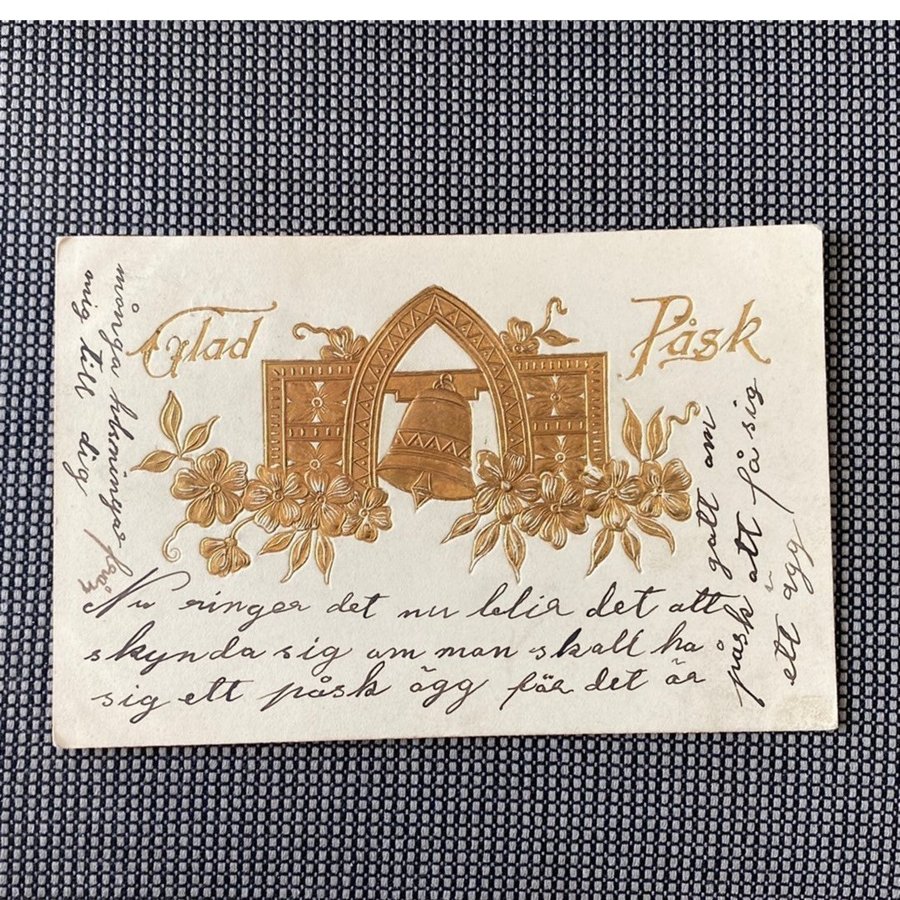 Glad Påsk
Nu ringer det nu blir det att
skynda sig om man skall ha
sig ett påsk ägg för det är
gott om
påsk att få sig
ett ägg
många helsningar från
mig till dig